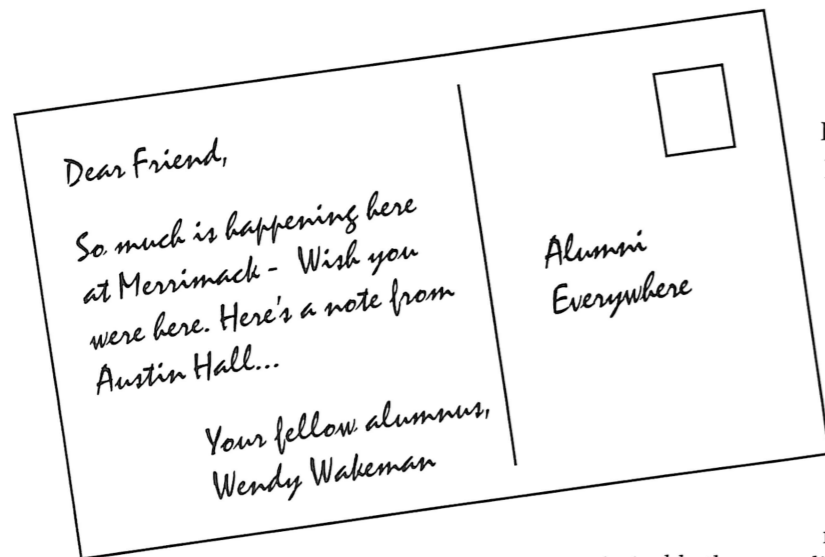 Dear Friend,
So much is happening here
at Merrimack - Wish you
were here. Here's a note from
Austin Hall...
Your fellow alumnus,
Wendy Wakeman
Alumni
Everywhere